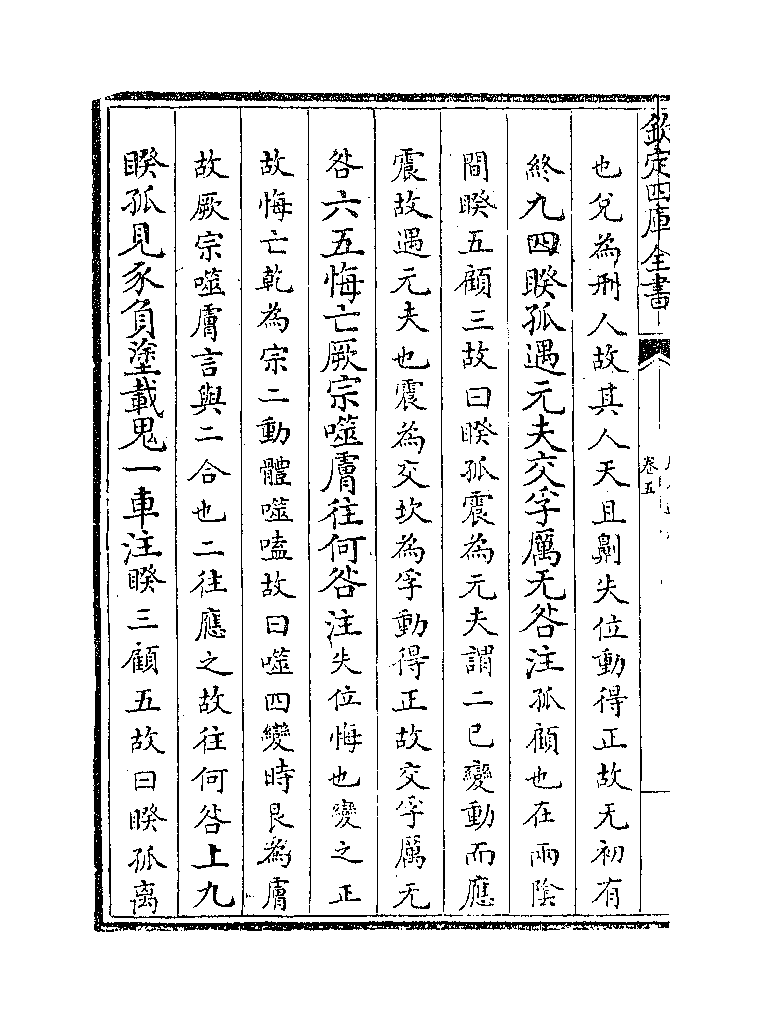 欽定四庫全書
卷五
也兌為刑人故其人天且劓失位動得正故无初有
終九四睽孤遇元夫交孚厲无咎注孤顧也在兩陰
間睽五顧三故曰睽孤震為元夫謂二已變動而應
震故遇元夫也震為交坎為孚動得正故交孚厲无
咎六五悔亡厥宗噬膚往何咎注失位悔也變之正
故悔亡乾為宗二動體噬嗑故曰噬四變時艮為膚
故厥宗噬膚言與二合也二往應之故往何咎上九
睽孤見豕負塗載鬼一車注睽三顧五故曰睽孤離